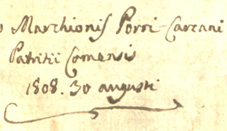 o Marchionis Porri-Carcani
Patritii Comensis
1808. 30 augusti